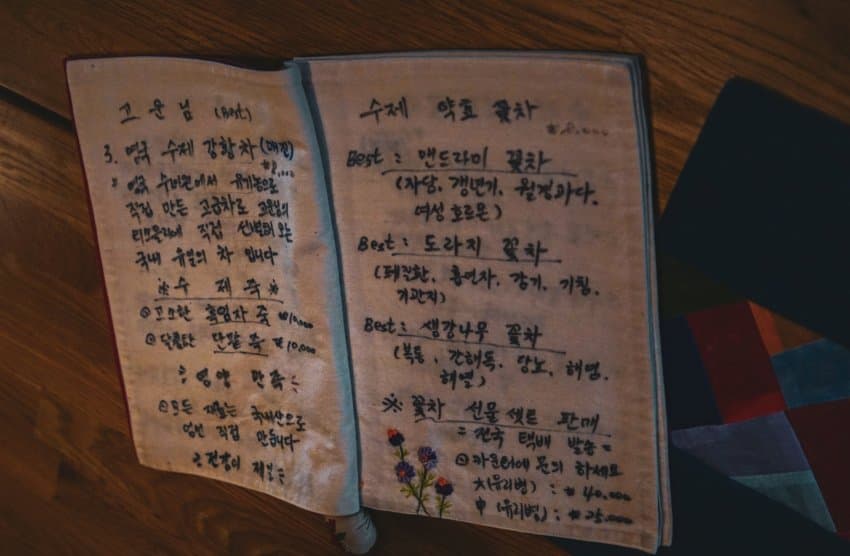 고운님 (Best)
3. 영국 수제 강황차 (매진)
₩8,000
= 영국 수비원에서 유기농으로
직접 만든 고급차로 고운님의
티소믈리에 직접 선보여 오는
국내 유일의 차 입니다
※수 제 죽※
⊙고소한 흑임자 죽 ₩10,000
⊙달콤한 단팥 죽 ₩10,000
= 영양 만족 =
⊙모든 재료는 국내산으로
엄선 직접 만듭니다
수제 약효 꽃차
₩8,000
Best : 맨드라미 꽃차
(자담, 갱년기, 월경과다.
여성 호르몬)
Best : 도라지 꽃차
(폐질환, 흡연자, 감기, 기침,
기관지)
Best : 생강나무 꽃차
(복통, 간해독, 당뇨, 해염.
해열)
※ 꽃차 선물셋트 판매
= 전국 택배 발송 =
⊙카운터에 문의 하세요
大(유리병) : ₩40,000
中(유리병) : ₩25,000